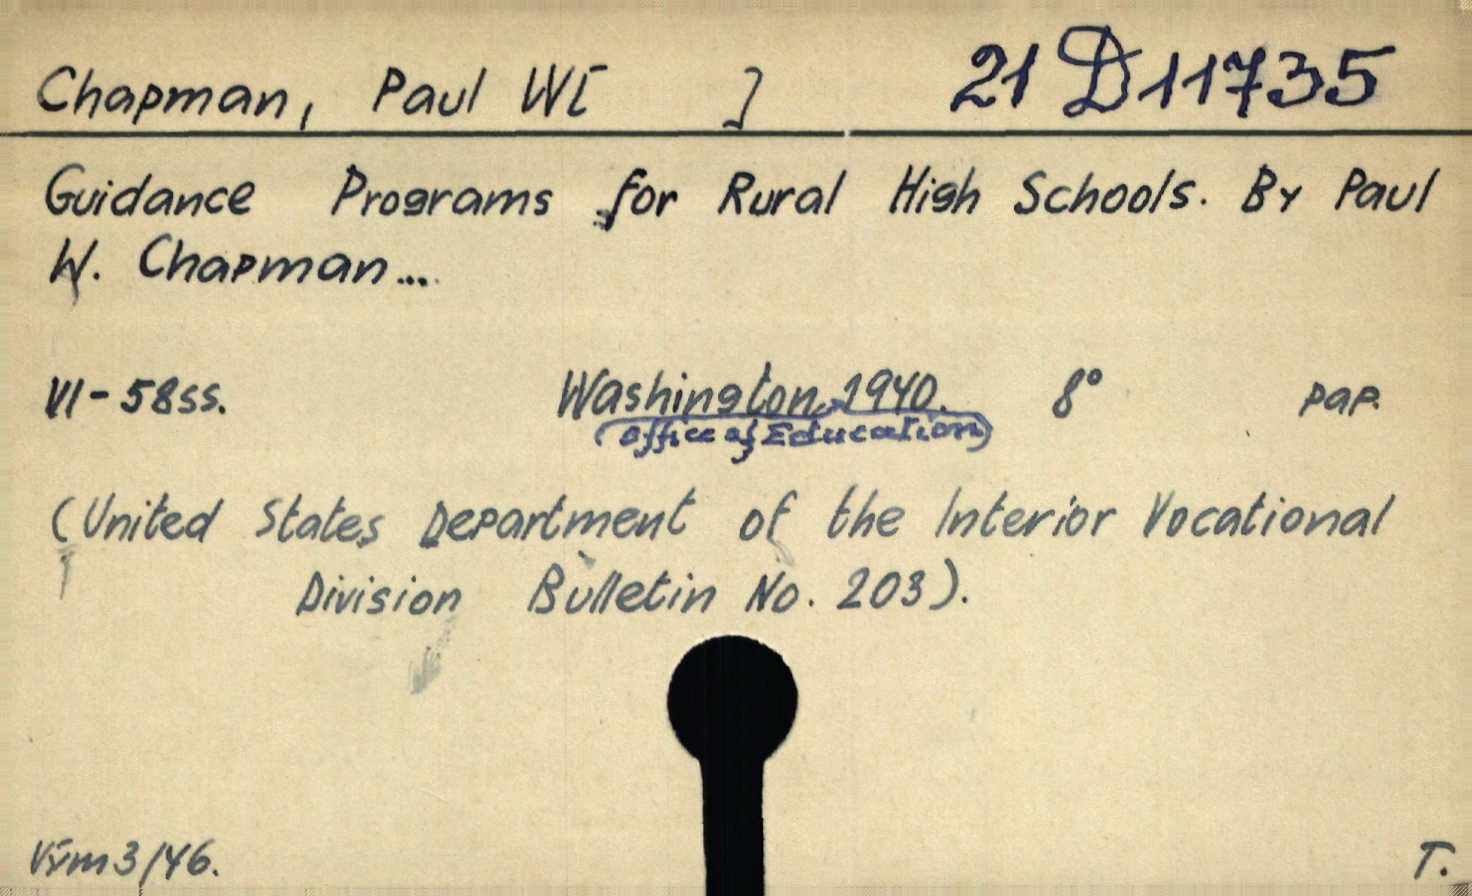 Chapman, Paul W[ ] 21 D 11735
Guidance Programs for Rural High Schools. By Paul
W. Chapman...
VI-58ss. Washington, 1940. 8° pap.
(Office of Education)
(United States Department of the Interior Vocational
Division Bulletin No. 203).
Vým 3/46.
T.